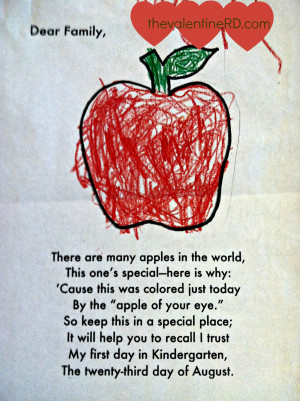 thevalentineRD.com
Dear Family,
There are many apples in the world,
This one's special—here is why:
'Cause this was colored just today
By the “apple of your eye.”
So keep this in a special place;
It will help you to recall I trust
My first day in Kindergarten,
The twenty-third day of August.